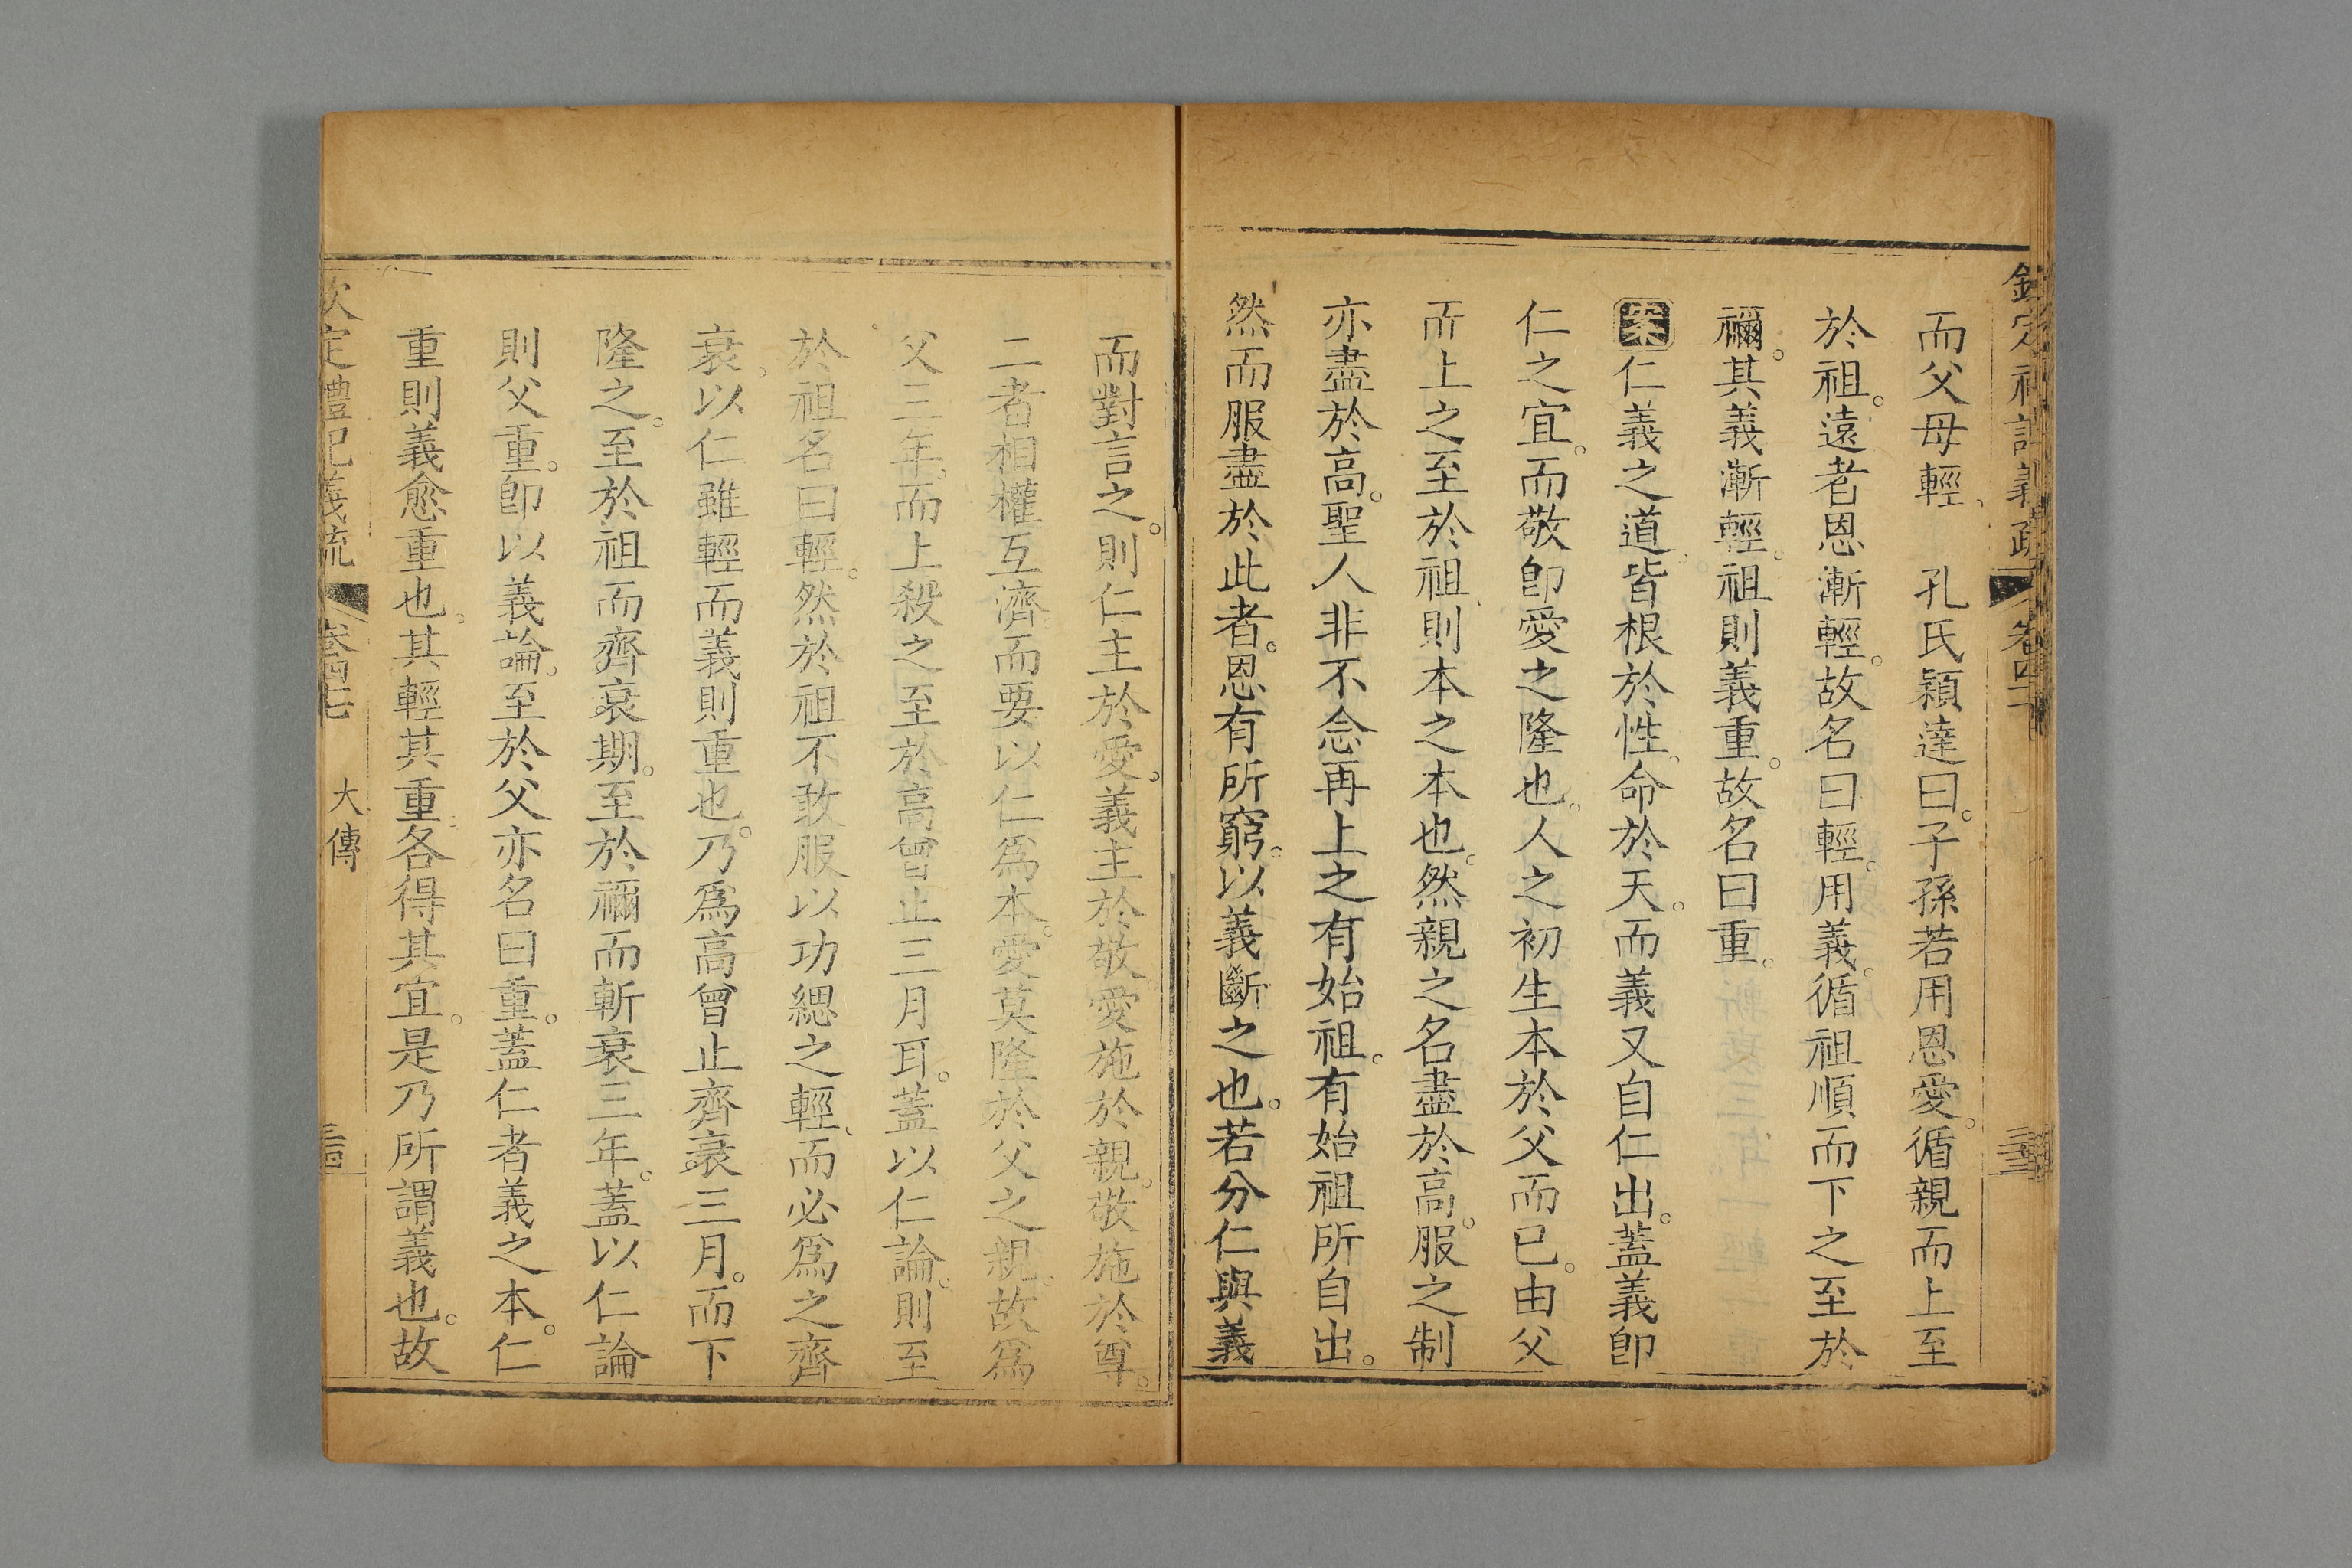 而父母輕、　孔氏穎達曰。子孫若用恩愛。循親而上至
於祖。遠者恩漸輕。故名曰輕。用義。循祖順而下之至於
禰。其義漸輕。祖則義重。故名曰重。
案仁義之道。皆根於性、命於天。而義又自仁出。蓋義卽
仁之宜。而敬卽愛之隆也。人之初生本於父而已。由父
而上之至於祖、則本之本也。然親之名盡於高。服之制
亦盡於高。聖人非不念再上之有始祖。有始祖所自出。
然而服盡於此者。恩有所窮。以義斷之也。若分仁與義
而對言之。則仁主於愛。義主於敬。愛施於親。敬施於尊。
二者相權互濟。而要以仁爲本。愛莫隆於父之親。故爲
父三年。而上殺之至於高曾止三月耳。蓋以仁論。則至
於祖名曰輕。然於祖不敢服以功緦之輕、而必爲之齊
衰。以仁雖輕而義則重也。乃爲高曾止齊衰三月。而下
隆之。至於祖而齊衰期。至於禰而斬衰三年。蓋以仁論
則父重。卽以義論。至於父亦名曰重。蓋仁者義之本。仁
重則義愈重也。其輕其重。各得其宜。是乃所謂義也。故
欽定禮記義疏　卷四七　大傳